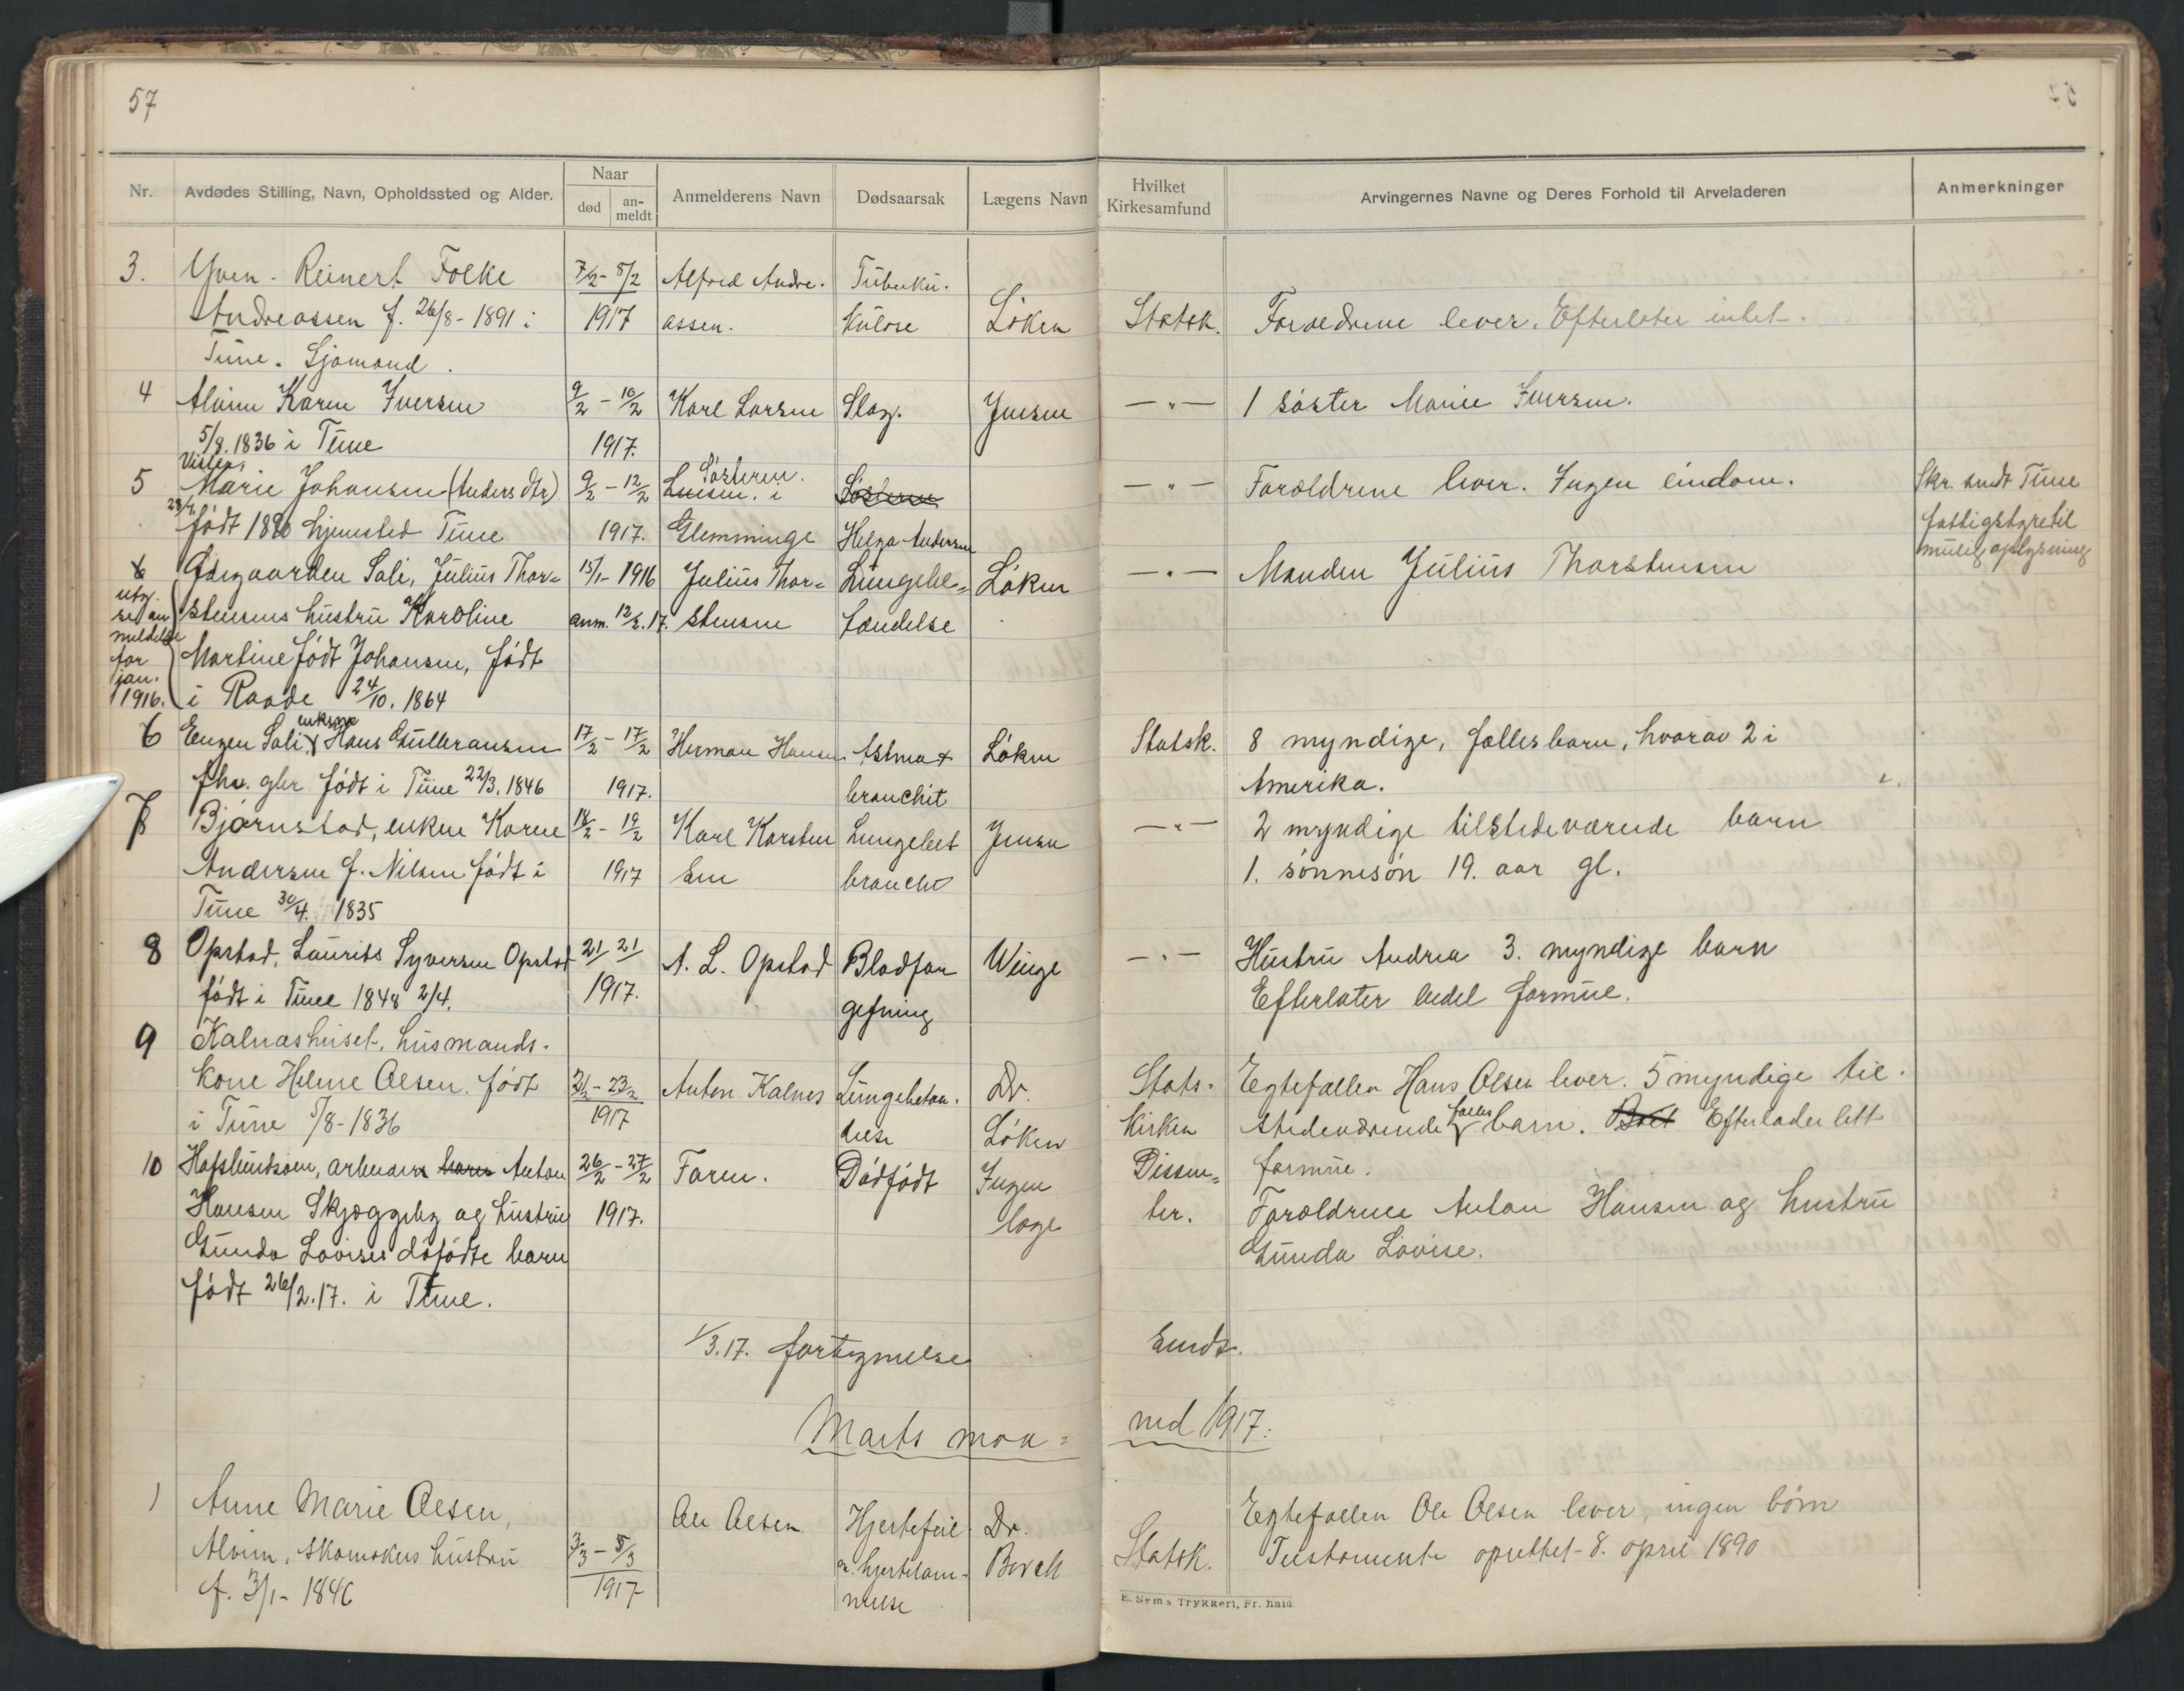 57
Nr. Avdødes Stilling, Navn, Opholdssted og Alder. Naar død an-meldt Anmelderens Navn Dødsaarsak Lægens Navn Hvilket Kirkesamfund Arvingernes Navne og Deres Forhold til Arveladeren Anmerkninger
3. Yven - Reinert Folke 7/2 - 8/2 Alfred Andre- Tuberku-
Andreassen f. 26/8 - 1891 i 1917 assen. kulose Løken Statsk. Forældrene lever. Efterlater intet.
Tune. Sjømand.
4 Alvim Karen Iversen 9/2 - 10/2 Karl Larsen Slag. Jensen — " — 1 søster Marie Iversen.
5/8. 1836 i Tune 1917.
Visten, Søsteren.
5 Marie Johansen (Anders dtr) 9/2 - 12/2 i — " — Forældrene lever. Ingen eindom. Skr. sendt Tune
28/4. født 1890 hjemsted Tune 1917. Glemminge Helga Andersen fattigstyre til
mulig oplysning
6 Sali, Julius Thor= 15/1 - 1916 Julius Thor= Lungebe= Løken — " — Manden Julius Thorstensen
utg. stensens hustru Karoline anm. 12/2. 17. stensen tændelse
se an
meldelse
for Martine født Johansen, født
jan.
1916. i Raade 24/10. 1864
enkem
6 Engen Sali, Hans Gulleransen 17/2 - 17/2 Herman Hansen Astma + Løken Statsk. 8 myndige, fælles barn, hvorav 2 i
fhv. gbr født i Tune 22/3. 1846 1917. bronchit Amerika.
7 Bjørnstad, enken Karen 18/2 - 19/2 Karl Karsten Lungebet Jensen — " — 2 myndige tilstedeværende barn
Andersen f. Nilsen født i 1917 sen bronchit 1. sønnesøn 19. aar gl.
Tune 30/4. 1835
8 Opstad, Laurits Syversen Opstad 21/ 21/ A. L. Opstad Blodfor Winge — " — Hustru Andrea 3. myndige barn
født i Tune 1848 2/4. 1917. gifning Efterlater endel formue.
9 Kalnæshuset, husmands-
kone Helene Olesen. født 21/2 - 23/2 Anton Kalnes Lungebetæn- Dr. Stats- Egtefællen Hans Olsen lever. 5 myndige til-
i Tune 5/8 - 1836 1917 delse Løken kirken stedeværende fælles barn. Boet Efterlader litt
10 Hafslundsøen, arbeider barn Anton 26/2 - 27/2 Faren. Dødfødt Ingen Dissen= formue.
Hansen Skjeggeby og hustru 1917. læge ter. Forældrene Anton Hansen og hustru
Gunda Lovises døfødte barn Gunda Lovise.
født 26/2. 17. i Tune.
1/3. 17. fortegnelse sendt.
Marts maa= ned 1917.
1 Anne Marie Olesen, Ole Olesen Hjertefeil Dr. Egtefællen Ole Olsen lever, ingen børn
Alvim, skomakers hustru 3/3 - 5/3 o. hjertelam- Borch Statsk. Testamente oprettet 8. april 1890
f. 3/1 - 1846 1917 melse
E. Sem's Trykkeri, Fr.hald.